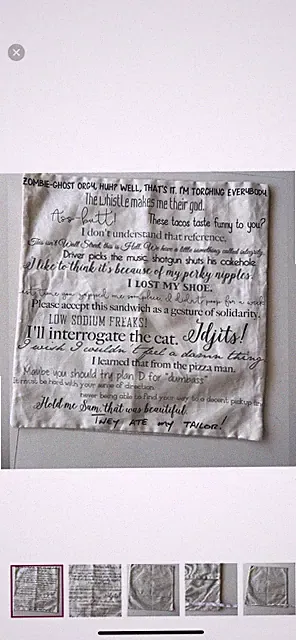 ZOMBIE-GHOST ORGY, HUH? WELL, THAT'S IT. I'M TORCHING EVERYBODY.
The whistle makes me their god.
Ass-butt! These tacos taste funny to you?
I don't understand that reference.
This isn't Wall Street, this is Hell. We have a little something called integrity.
Driver picks the music, shotgun shuts his cakehole.
I like to think it's because of my perky nipples.
I LOST MY SHOE.
time you zapped me someplace I didn't poop for a week.
Please accept this sandwich as a gesture of solidarity.
LOW SODIUM FREAKS!
I'll interrogate the cat. Idjits!
I wish I couldn't feel a damn thing
I learned that from the pizza man.
Maybe you should try plan D for "dumbass"
It must be hard with your sense of direction,
never being able to find your way to a decent pickup
Hold me Sam, that was beautiful.
THEY ATE MY TAILOR!